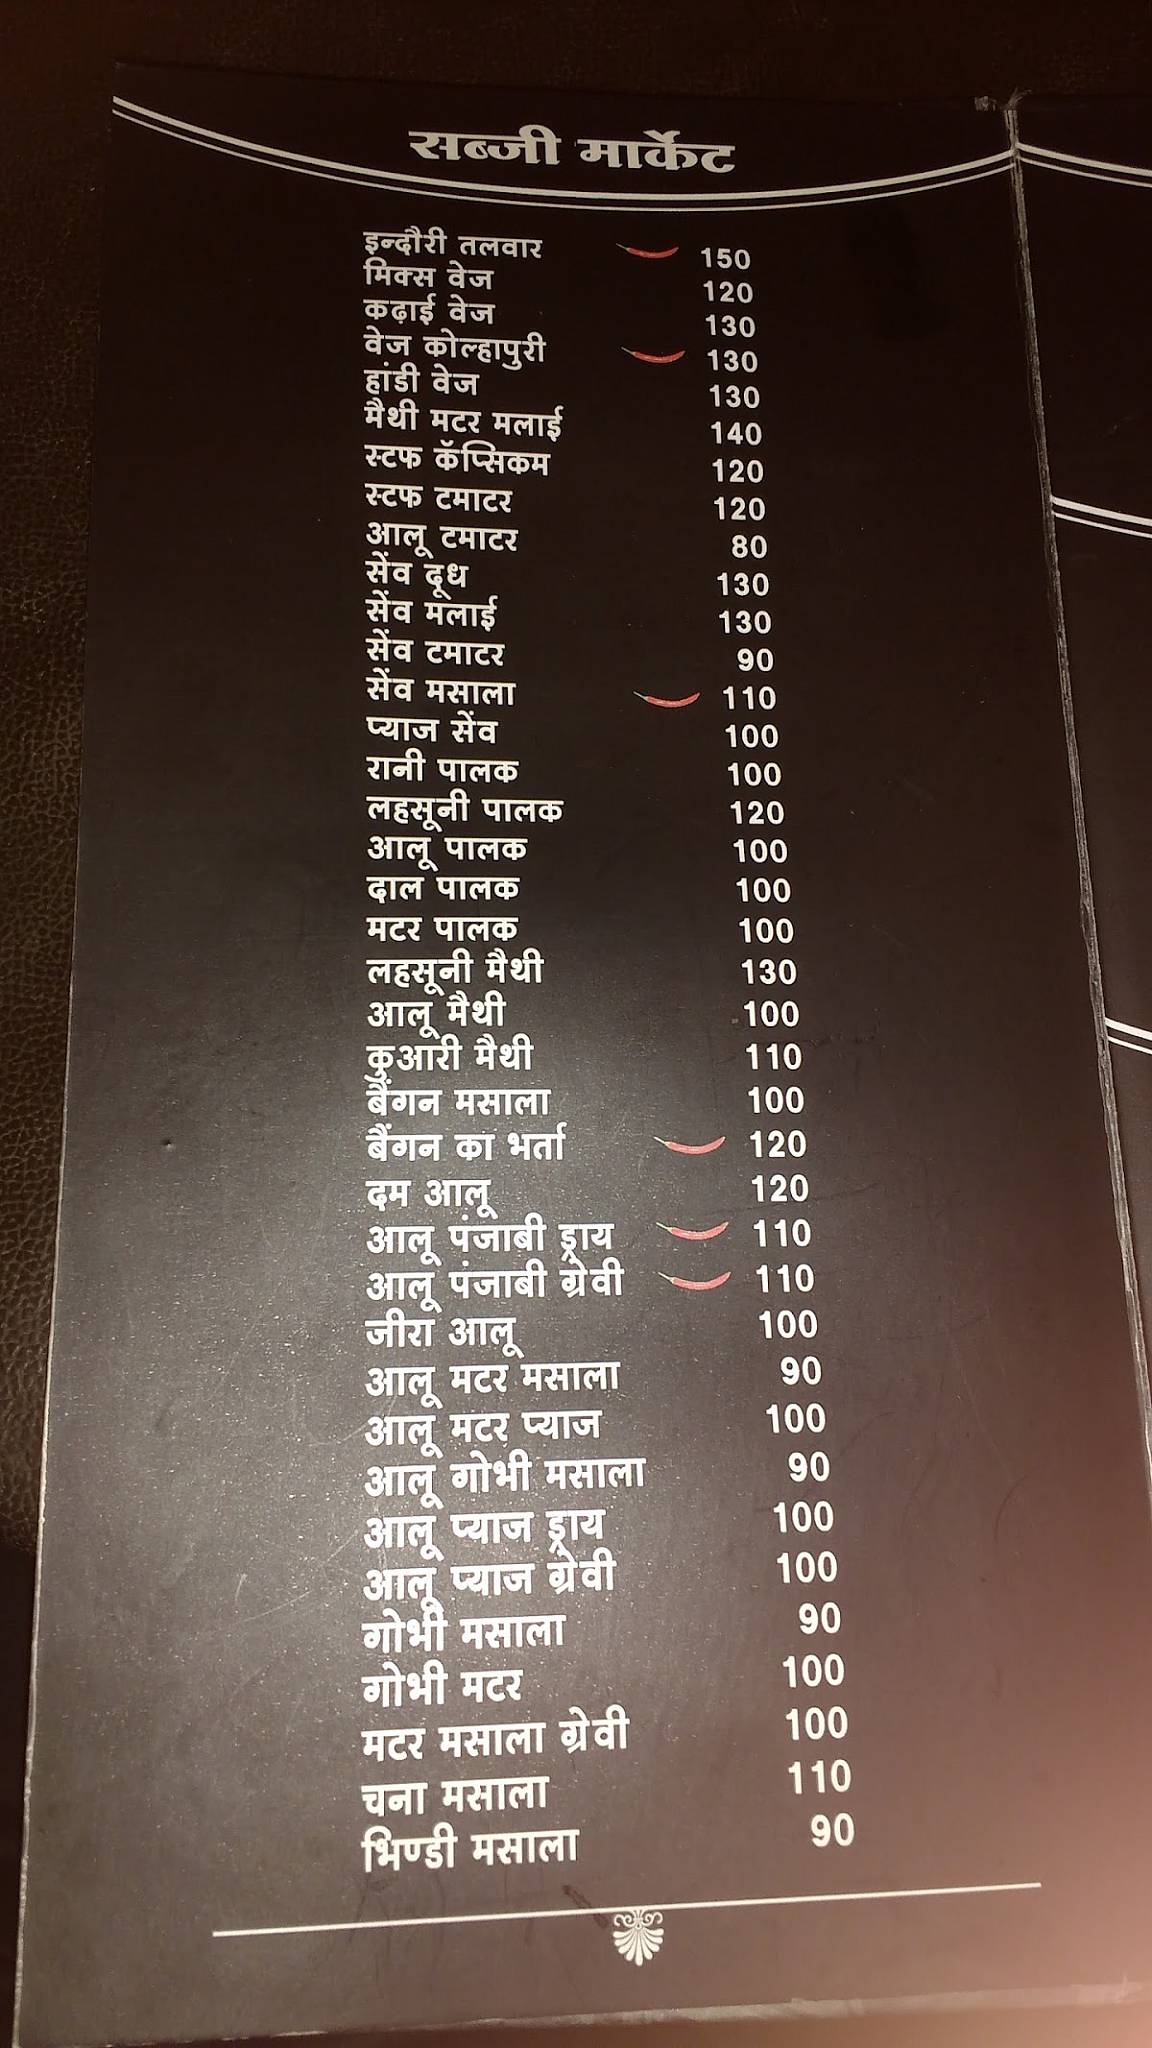 सब्जी मार्केट
इन्दौरी तलवार 150
मिक्स वेज 120
कढ़ाई वेज 130
वेज कोल्हापुरी 130
हांडी वेज 130
मैथी मटर मलाई 140
स्टफ कॅप्सिकम 120
स्टफ टमाटर 120
आलू टमाटर 80
सेंव दूध 130
सेंव मलाई 130
सेंव टमाटर 90
सेंव मसाला 110
प्याज सेंव 100
रानी पालक 100
लहसूनी पालक 120
आलू पालक 100
दाल पालक 100
मटर पालक 100
लहसूनी मैथी 130
आलू मैथी 100
कुआरी मैथी 110
बैंगन मसाला 100
बैंगन का भर्ता 120
दम आलू 120
आलू पंजाबी ड्राय 110
आलू पंजाबी ग्रेवी 110
जीरा आलू 100
आलू मटर मसाला 90
आलू मटर प्याज 100
आलू गोभी मसाला 90
आलू प्याज ड्राय 100
आलू प्याज ग्रेवी 100
गोभी मसाला 90
गोभी मटर 100
मटर मसाला ग्रेवी 100
चना मसाला 110
भिण्डी मसाला 90